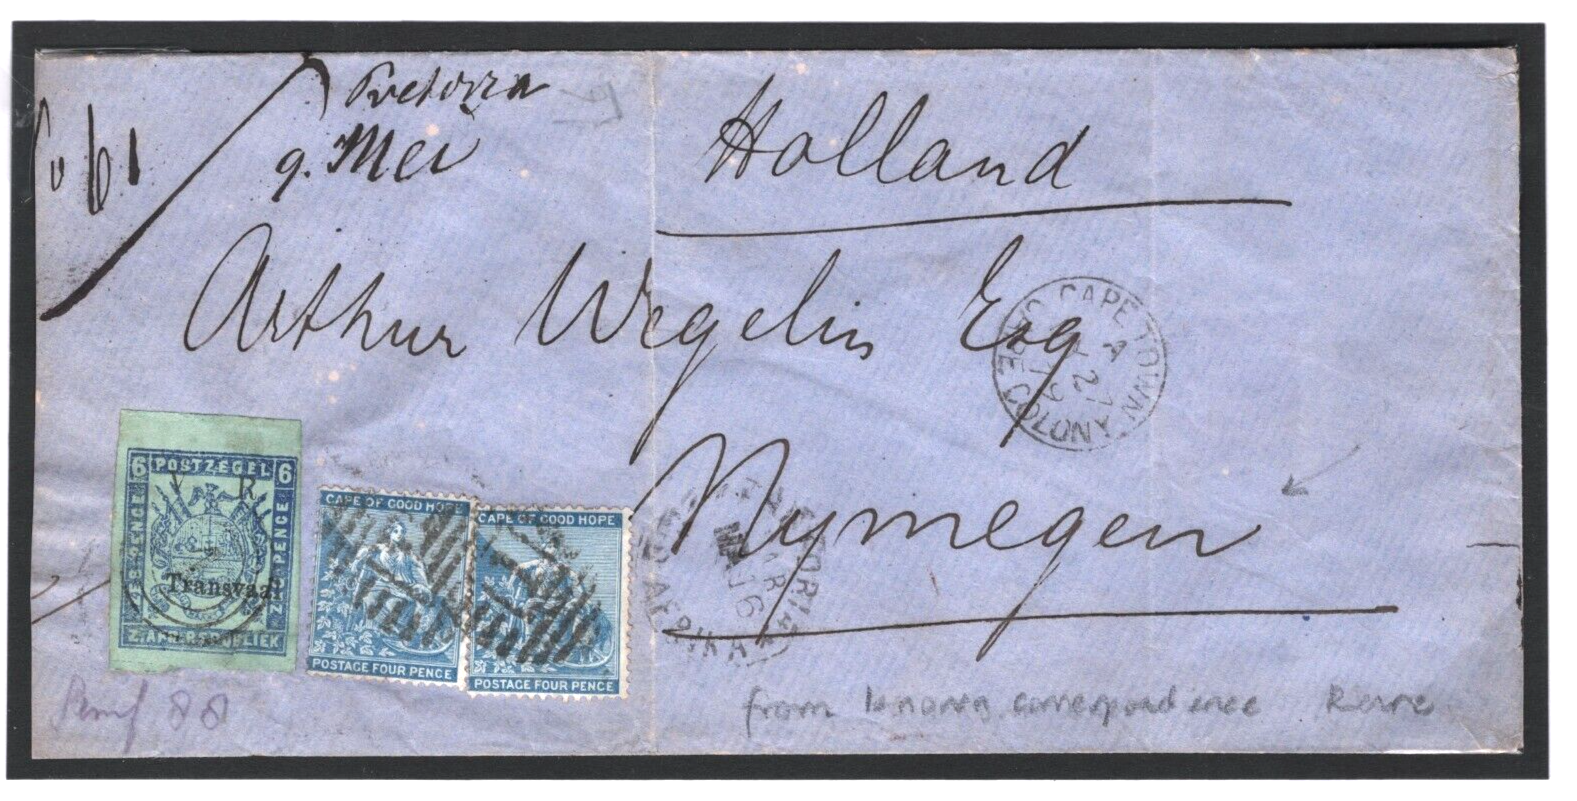 Pretoria
9. Mei
Holland
Arthur Wegelin Esq
Nymegen
CAPE TOWN
CAPE COLONY
A
27
79
6 POSTZEGEL 6
V R
ZES PENCE
ZES PENCE
Transvaal
Z. AFR. REPUBLIEK
CAPE OF GOOD HOPE
POSTAGE FOUR PENCE
CAPE OF GOOD HOPE
POSTAGE FOUR PENCE
16
AFRIKA
88
from known correspondence Rare